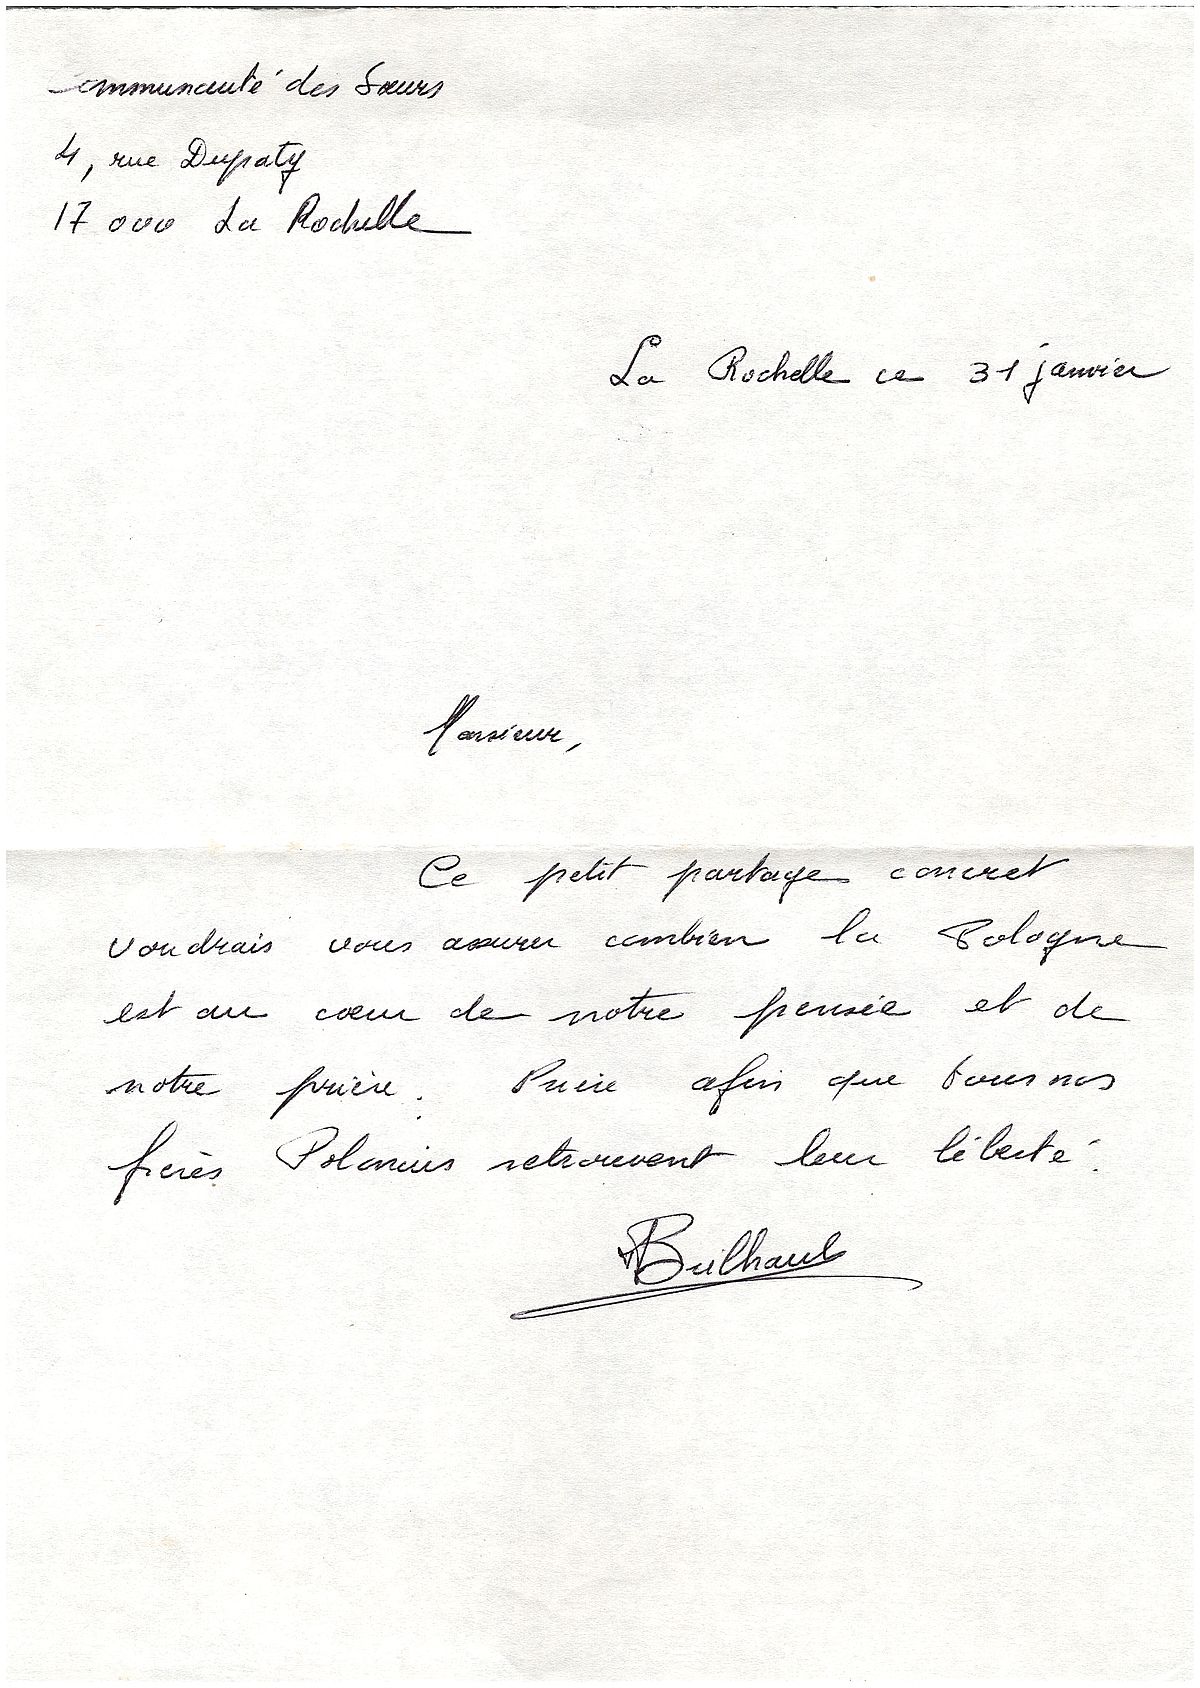 Communauté des Sœurs
4, rue Dupaty
17 000 La Rochelle
La Rochelle ce 31 janvier
Monsieur,
Ce petit partage concret
voudrais vous assurer combien la Pologne
est au cœur de notre pensée et de
notre prière. Prière afin que tous nos
frères Polonais retrouvent leur liberté.